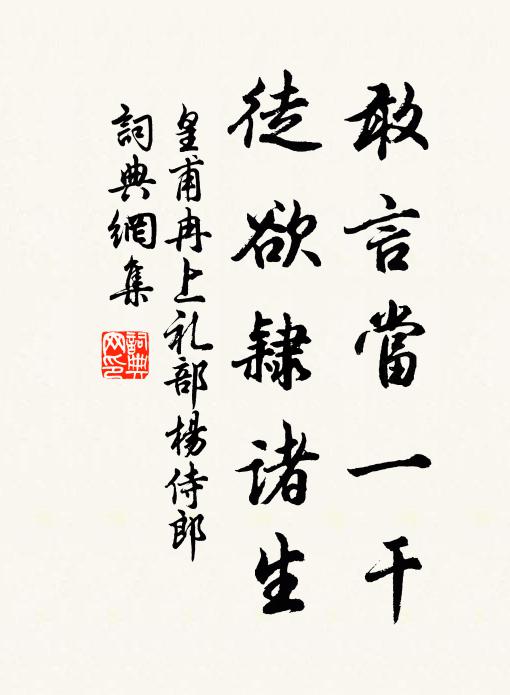 敢言當一干
徒欲隸诸生
皇甫冉上礼部楊侍郎
詞典網集
詞典网印